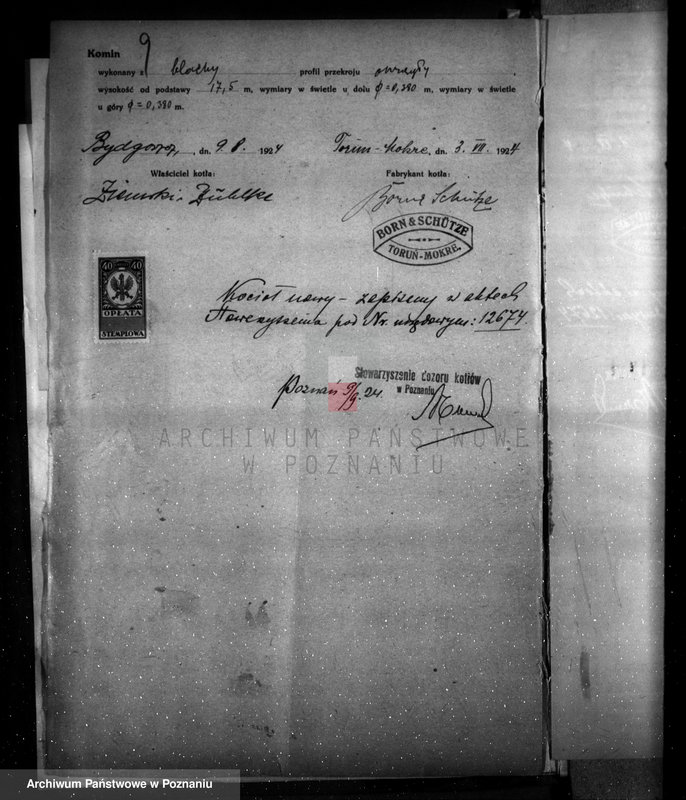 Komin
wykonany z blachy profil przekroju okrągły.
wysokość od podstawy 17,5 m, wymiary w świetle u dołu ϕ = 0,380 m, wymiary w świetle
u góry ϕ = 0,380 m.
Bydgoszcz, dn. 9. 8. 1924 Toruń-Mokre, dn. 3. VII. 1924
Właściciel kotła: Fabrykant kotła:
Ziemski i Born & Schütze
BORN & SCHÜTZE
TORUŃ-MOKRE.
40 40
OPŁATA
STEMPLOWA
Kocioł nowy – zapisany w aktach
Stowarzyszenia pod Nr. urzędowym: 12674.
Stowarzyszenie dozoru kotłów
w Poznaniu
Poznań 9/9. 24.
ARCHIWUM PAŃSTWOWE
W POZNANIU
Archiwum Państwowe w Poznaniu